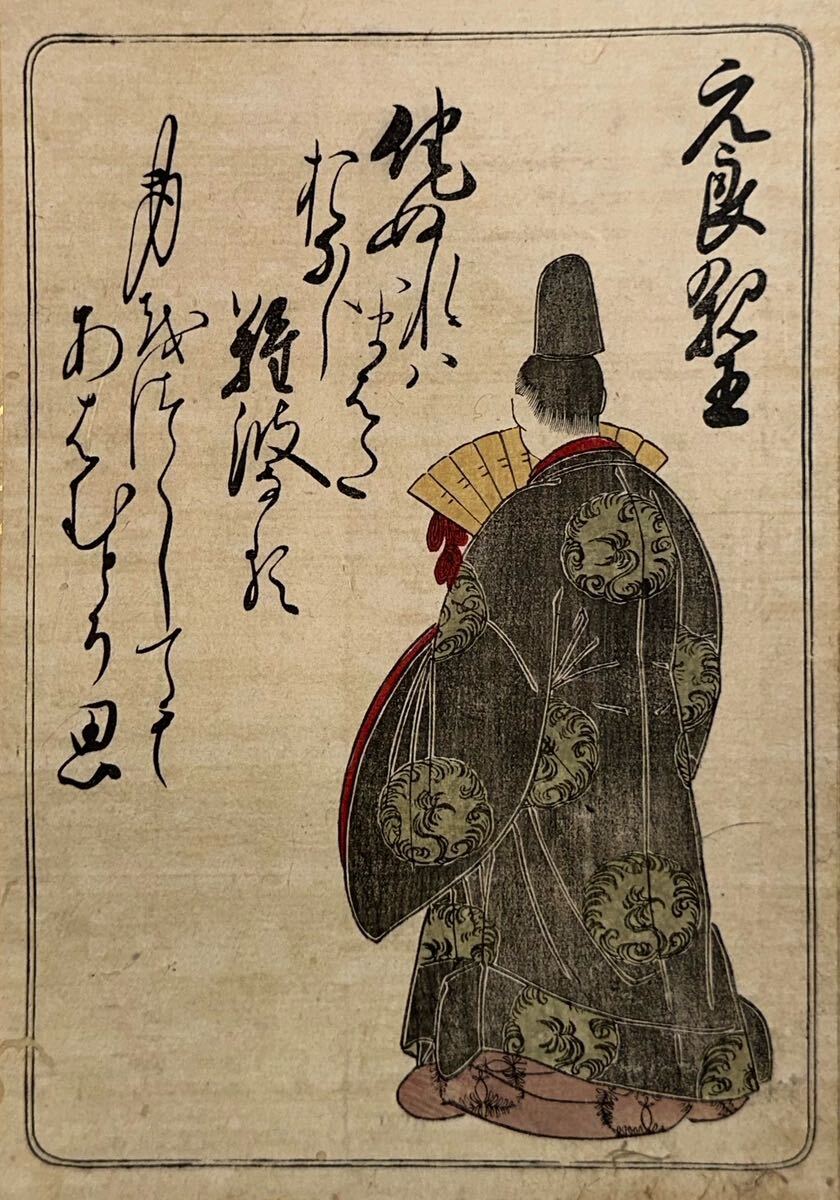 元良親王
侘ぬれハ
いまはた
おなし
難波なる
身越つくしても
あはむとそ思